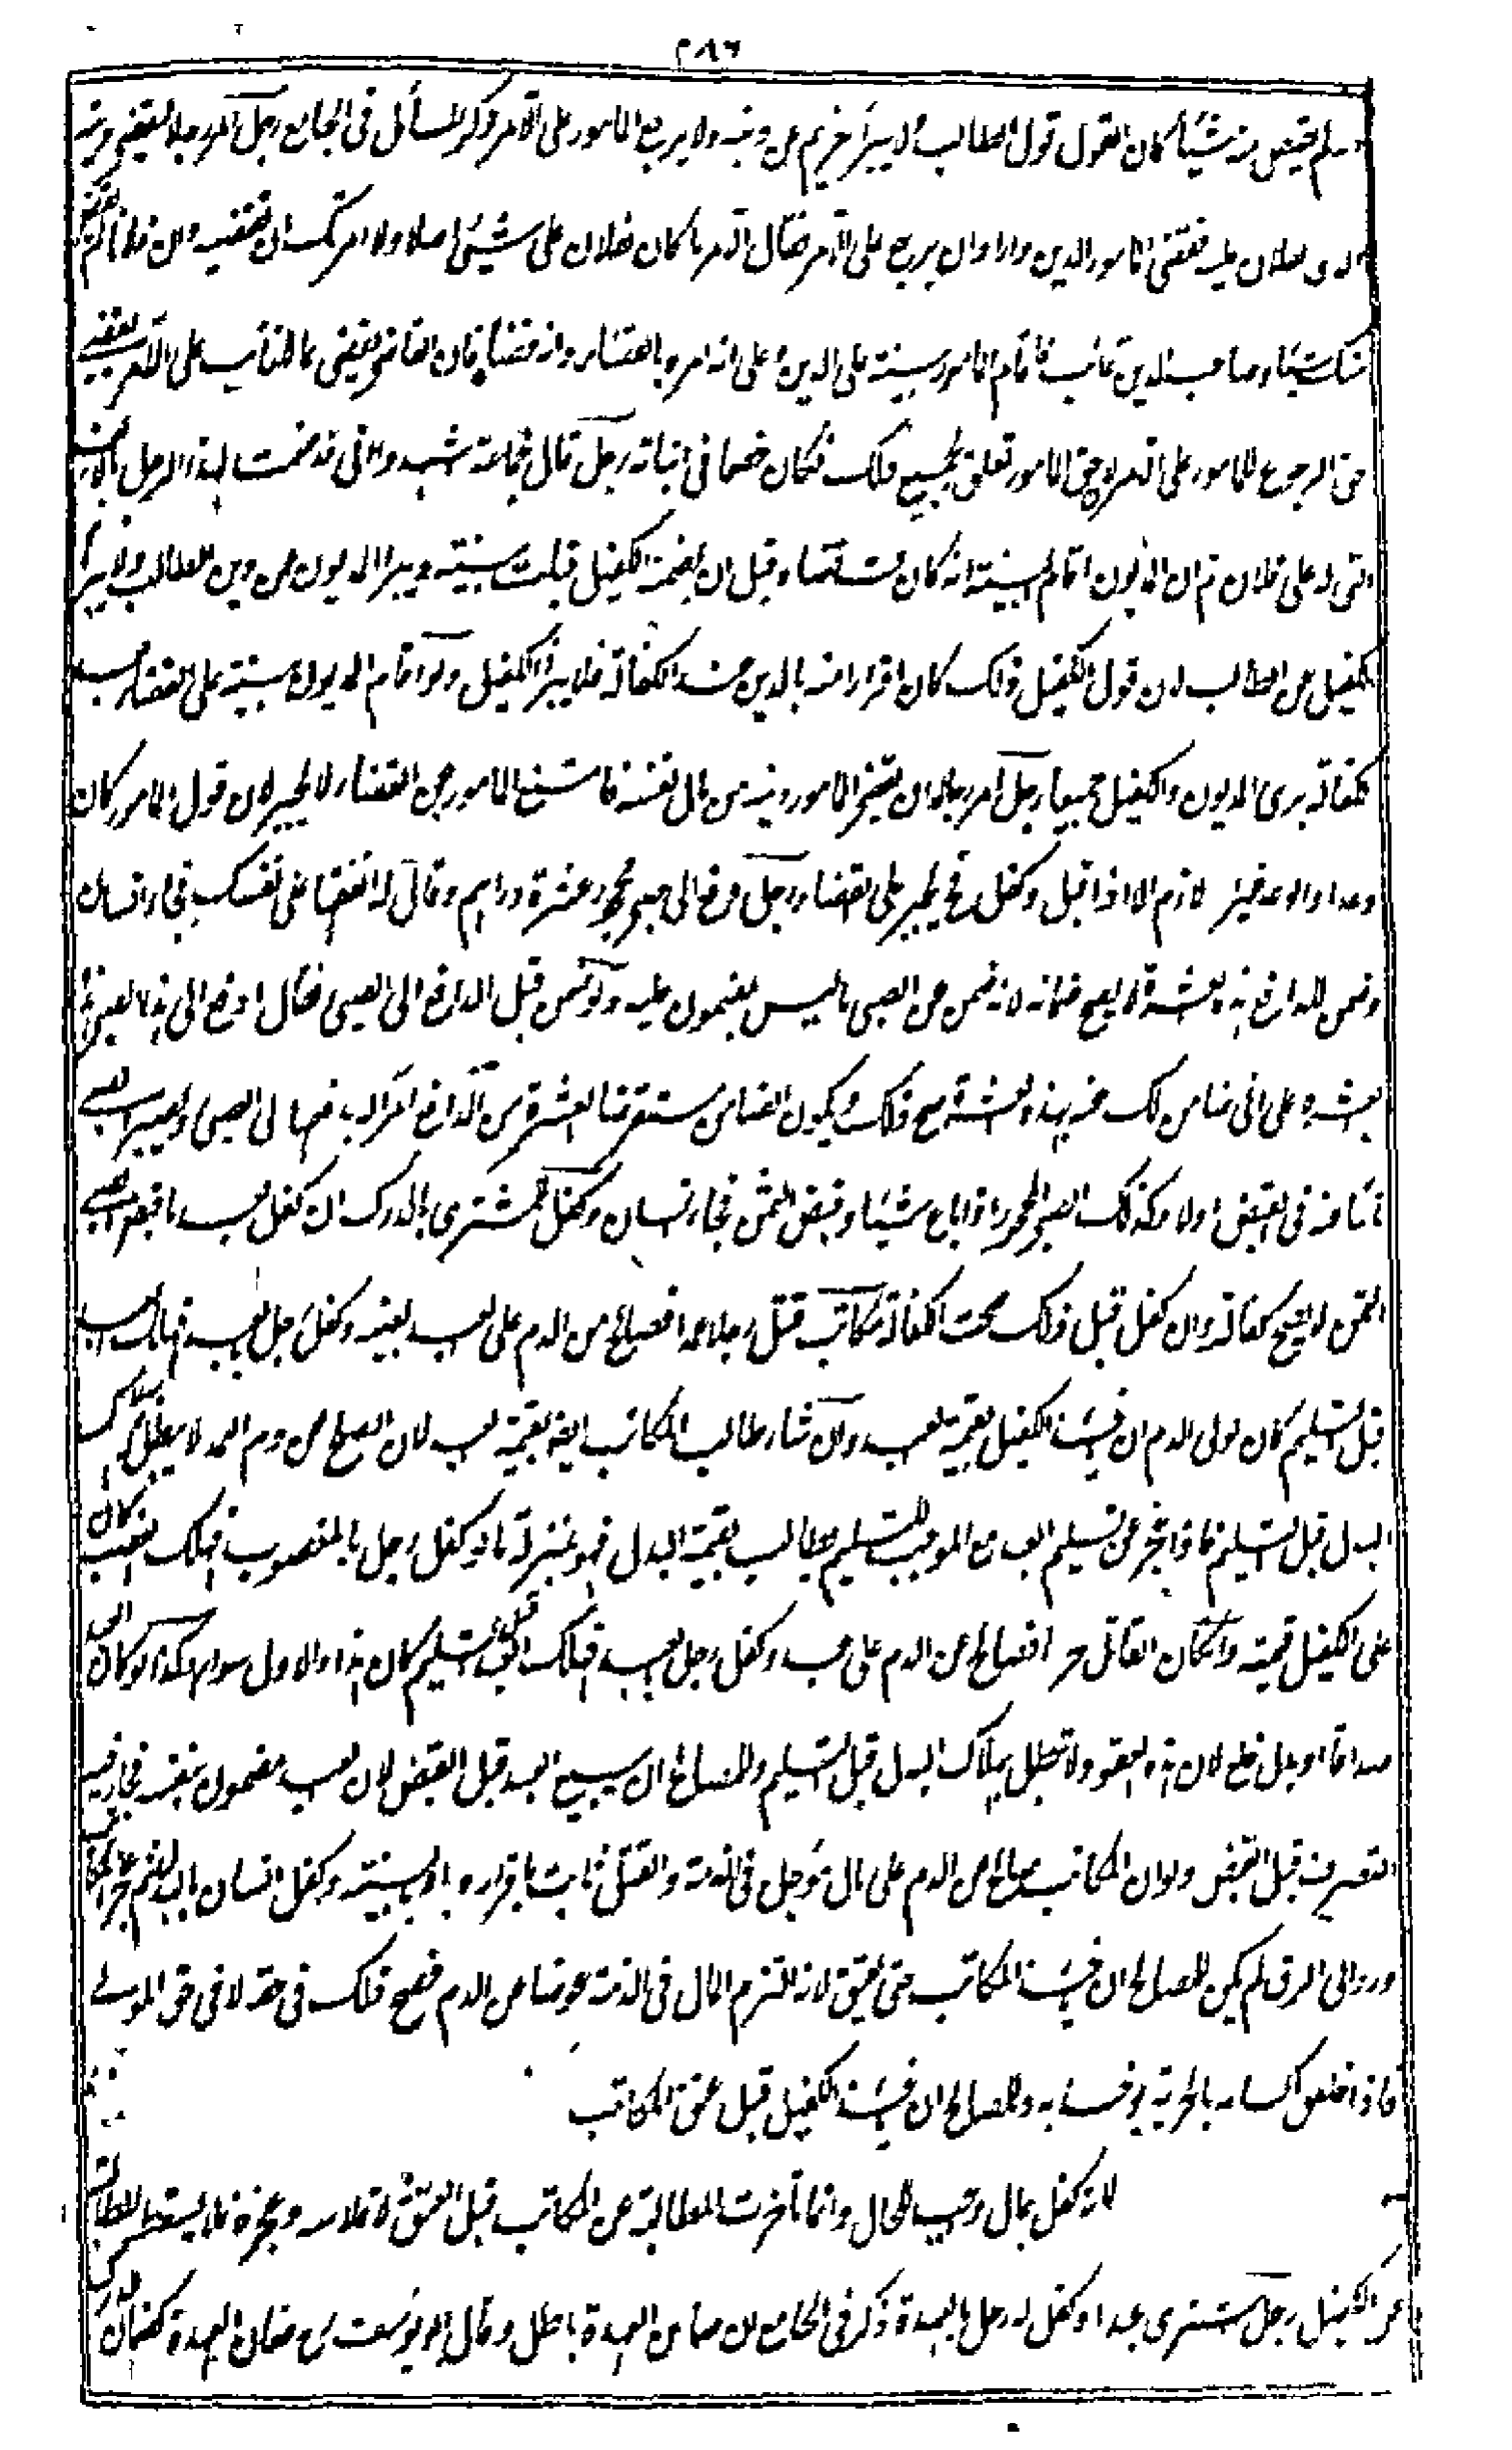 ٢٨٦
لم يقبض منه شيئا كان القول قول الطالب ولا يبرأ غريم عن دينه ولا يرجع المامور على الآمر وذكر المسائل في الجامع رجل امر رجلا ليقضي دينه
الذي لفلان عليه فقضى المامور الدين واراد ان يرجع على الآمر فقال الآمر ما كان لفلان علي شيء اصلا ولا امرتك ان تقضيه
شيئا وصاحب الدين غائب فاقام المامور بينة على الدين وعلى انه امره بالقضاء وانه قضاه فان القاضي يقضي بالمال للغائب على الآمر
حق الرجوع للمامور على الآمر لان حق المامور تعلق بجميع ذلك فكان خصما في اثباته رجل قال لجماعة اشهدوا اني قد ضمنت لهذا الرجل بالالف
التي له على فلان ثم ان المديون اقام البينة انه كان قد قضاه قبل ان يضمنه الكفيل قبلت بينته ويبرأ المديون عن دين الطالب ولا يبرأ
الكفيل عن الطالب لان قول الكفيل ذلك كان اقرارا منه بالدين عند الكفالة فلا يبرأ الكفيل ولو اقام المديون بينة على القضاء بعد
الكفالة برئ المديون والكفيل جميعا رجل امر رجلا ان يقضي المامور دينه من مال نفسه فامتنع المامور عن القضاء لا يجبر لان قول المامور كان
وعدا والوعد غير لازم الا اذا قبل وكفل فح يجبر على القضاء رجل دفع الى صبي محجور عشرة دراهم وقال له انفقها على نفسك فجاء انسان
وضمن للدافع بهذه العشرة لا يصح ضمانه لانه ضمن عن الصبي ما ليس بمضمون عليه ولو ضمن قبل الدافع الى الصبي فقال ادفع الى هذا الصبي
العشرة على اني ضامن لك عنه بهذه العشرة صح ذلك ويكون الضامن مستقرضا العشرة من الدافع آمرا له بدفعها الى الصبي ويصير الصبي
نائبا عنه في القبض اولا وكذلك الصبي المحجور اذا باع شيئا وقبض الثمن فجاء انسان وكفل للمشتري بالدرك ان كفل بعد ما قبض الصبي
الثمن لا يصح كفالته وان كفل قبل ذلك صحت الكفالة مكاتب قتل رجلا عمدا فصالح من الدم على عبد بعينه وكفل رجل بالعبد فهلك العبد
قبل التسليم كان لولي الدم ان يتبع الكفيل بقيمة العبد وان شاء طالب المكاتب ايضا بقيمة العبد لان الصلح عن دم العمد لا يبطل بهلاك
البدل قبل التسليم فاذا عجز عن تسليم العبد مع الموجب للتسليم يطالب بقيمة البدل فهو بمنزلة ما لو كفل رجل بالمغصوب فهلك المغصوب كان
على الكفيل قيمته وان كان القاتل حرا فصالح عن الدم على عبد وكفل رجل بالعبد فهلك العبد قبل التسليم كان هذا والاول سواء وكذا لو كان العبد
صداقا او بدل خلع لان هذه العقود لا تبطل بهلاك البدل قبل التسليم وللمصالح ان يبيع العبد قبل القبض لان العبد مضمون بنفسه فجاز فيه
التصرف قبل القبض ولو ان المكاتب صالح عن الدم على مال مؤجل في الذمة والقتل ثابت باقراره او بالبينة وكفل انسان بالبدل ثم عجز المكاتب
ورد الى الرق لم يكن للمصالح ان يتبع المكاتب حتى يعتق لانه التزم المال في الذمة عوضا عن الدم فصح ذلك في حقه لا في حق المولى
فاذا بالحرية وللمصالح ان يتبع الكفيل قبل عتق المكاتب
لانه كفل بمال وجب للحال وانما تأخرت المطالبة عن المكاتب قبل العتق لافلاسه وعجزه فلا يسقط المطالبة
عن الكفيل رجل اشترى عبدا وكفل له رجل بالعهدة ذكر في الجامع ان ضمان العهدة باطل وقال ابو يوسف رح ضمان العهدة كضمان الدرك